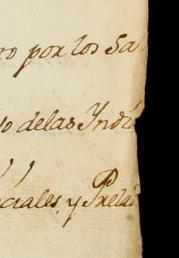 ro por los Sa
o delas Indi
ciales, y Prela